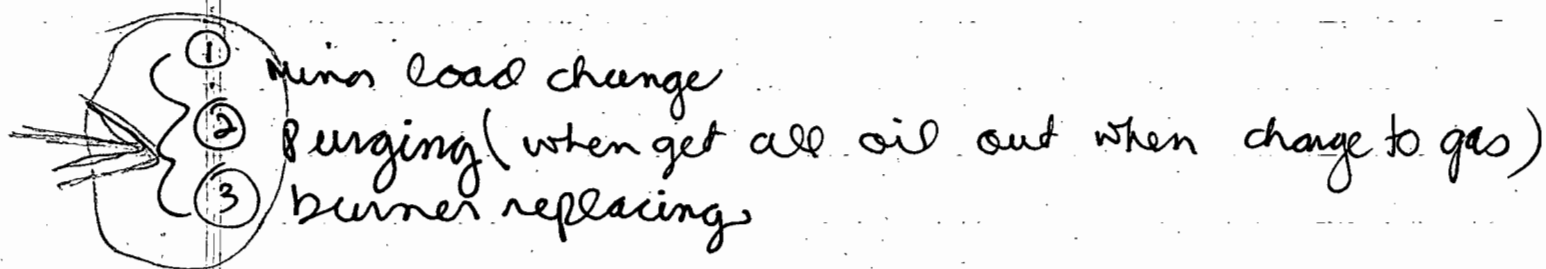 ① Minor load change
② Purging (when get all oil out when change to gas)
③ burner replacing